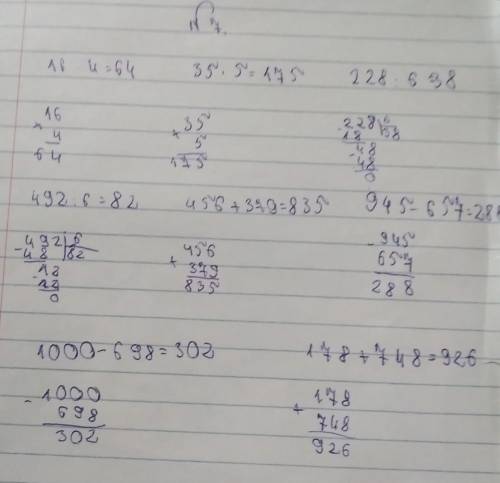 N 7.
16 4=64 35·5=175 228:6 38
16 35 228 6
× 4 × 5 18 38
64 175 48
48
0
492:6=82 456+379=835 945-657=288
492 6 456 945
48 82 + 379 - 657
12 835 288
12
0
1000-698=302 178+748=926
1000 178
- 698 + 748
302 926